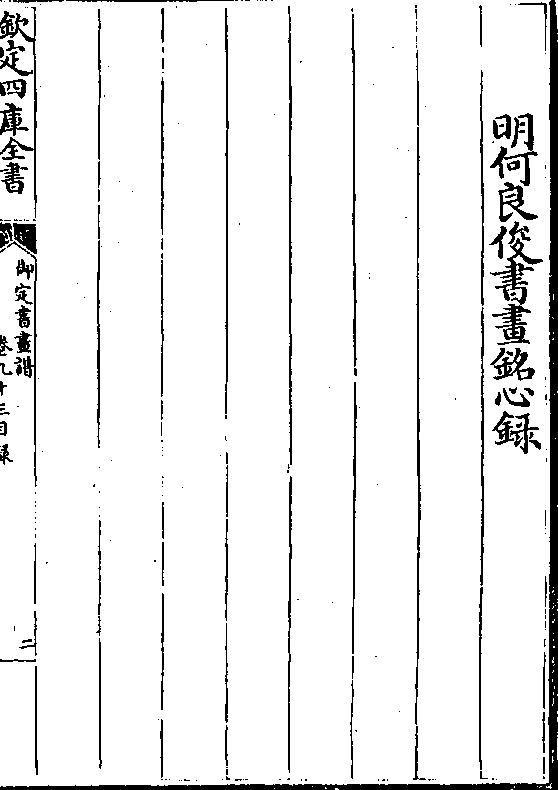 明何良俊書畫銘心録
欽定四庫全書
御定書畫譜
卷九十三目録
二